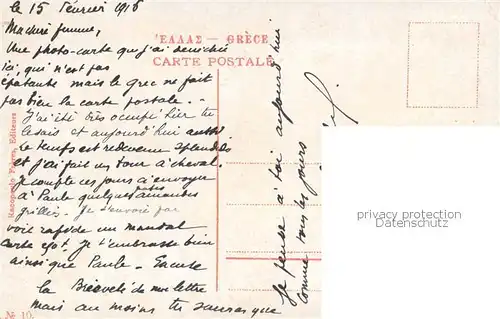 le 15 Février 1916
Ma chère femme,
Une photo-carte que j'ai dénichée
ici, qui n'est pas
épatante mais le grec ne fait
pas bien la carte postale. -
J'ai été très occupé hier tu
le sais et aujourd'hui aussi
Le temps est redevenu splendide
et j'ai fait un tour à cheval
Je compte ces jours à envoyer
à Paule quelques amandes
grillées. Je t'envoie par
voie rapide un mandat
carte Je t'embrasse bien
ainsi que Paule - Excuse
la Brièveté de ma lettre
mais au moins tu sauras que
je pense à toi aujourd'hui
comme tous les jours
ἙΛΛΑΣ — GRÈCE
CARTE POSTALE
Frères, Editeurs
№ 10.
privacy protection
Datenschutz